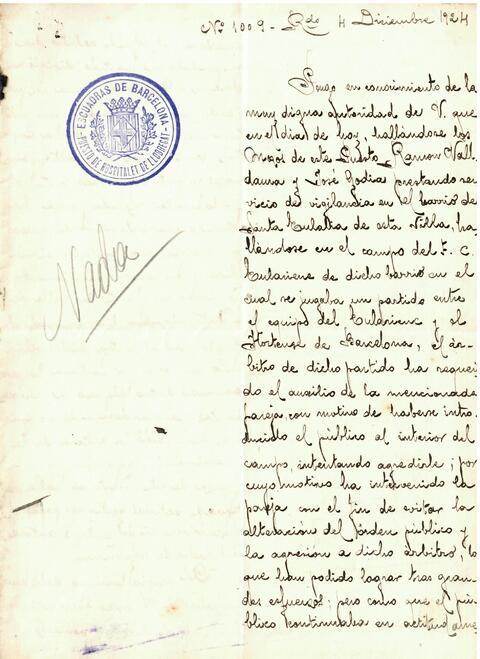 Nº 1009 - Rdo 4 Diciembre 1924
ESCUADRAS DE BARCELONA
PUESTO DE HOSPITALET DE LLOBREGAT
Nada
Pongo en conocimiento de la
muy digna autoridad de V. que
en el dia de hoy, hallándose los
Mozos de este Puesto, Ramon Vall-
daura y José Rodia prestando ser
vicio de vigilancia en el barrio de
Santa Eulalia de esta Villa, ha
llándose en el campo del F. C.
Eulariene de dicho barrio en el
cual se jugaba un partido entre
el equipo del Eulariene y el
Hortense de Barcelona, el ár-
bitro de dicho partido ha requeri
do el auxilio de la mencionada
pareja, con motivo de haberse intro
ducido el público al interior del
campo, intentando agredirle; por
cuyo motivo ha intervenido la
pareja con el fin de evitar la
alteración del órden público y
la agresion a dicho árbitro, lo
que han podido lograr tras gran-
des esfuerzos; pero como que el pú-
blico continuaba en actitud ame